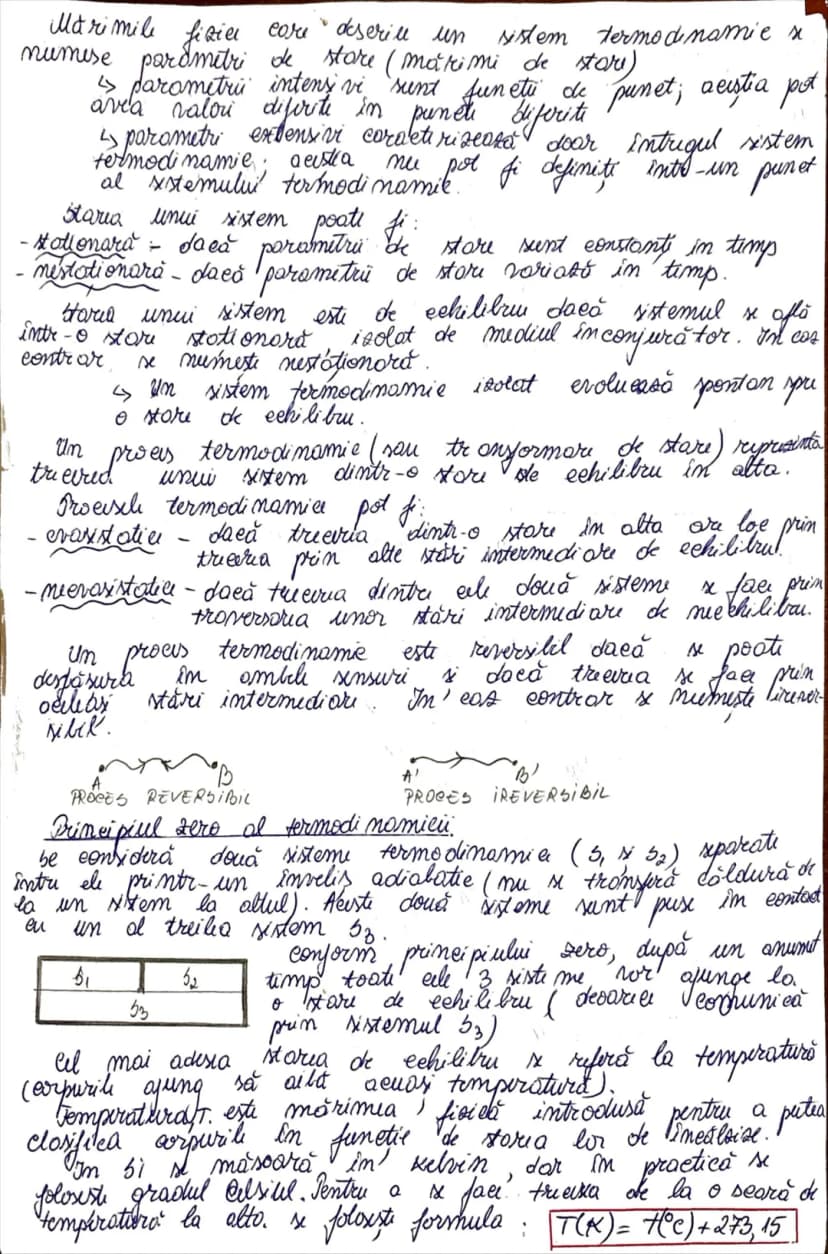 Mărimile fizice care descriu un sistem termodinamic se
numesc parametri de stare (mărimi de stare)
↳ parametrii intensivi sunt funcții de punct; aceștia pot
avea valori diferite în puncte diferite
↳ parametri extensivi caracterizează doar întregul sistem
termodinamic; aceștia nu pot fi definiți într-un punct
al sistemului termodinamic.
Starea unui sistem poate fi:
- staționară - dacă parametrii de stare sunt constanți în timp
- nestaționară - dacă parametrii de stare variază în timp.
Starea unui sistem este de echilibru dacă sistemul se află
într-o stare staționară izolat de mediul înconjurător. În caz
contrar se numește nestaționară.
↳ Un sistem termodinamic izolat evoluează spontan spre
o stare de echilibru.
Un proces termodinamic (sau transformare de stare) reprezintă
trecerea unui sistem dintr-o stare de echilibru în alta.
Procesele termodinamice pot fi:
- cvasistatice - dacă trecerea dintr-o stare în alta are loc prin
trecerea prin alte stări intermediare de echilibru.
- necvasistatice - dacă trecerea dintre cele două sisteme se face prin
traversarea unor stări intermediare de neechilibru.
Un proces termodinamic este reversibil dacă se poate
desfășura în ambele sensuri și dacă trecerea se face prin
aceleași stări intermediare. În caz contrar se numește irever-
sibil.
A B A' B'
PROCES REVERSIBIL PROCES IREVERSIBIL
Principiul zero al termodinamicii.
Se consideră două sisteme termodinamice (S1 și S2) separate
între ele printr-un înveliș adiabatic (nu se transferă căldură de
la un sistem la altul). Aceste două sisteme sunt puse în contact
cu un al treilea sistem S3.
Conform principiului zero, după un anumit
S1 S2 timp toate cele 3 sisteme vor ajunge la
S3 o stare de echilibru (deoarece comunică
prin sistemul S3)
Cel mai adesea starea de echilibru se referă la temperatură
(corpurile ajung să aibă aceeași temperatură).
Temperatura, T. este mărimea fizică introdusă pentru a putea
clasifica corpurile în funcție de starea lor de încălzire.
În SI se măsoară în kelvin, dar în practică se
folosește gradul Celsius. Pentru a se face trecerea de la o scară de
temperatură la alta. se folosește formula : T(K) = t(°C) + 273,15